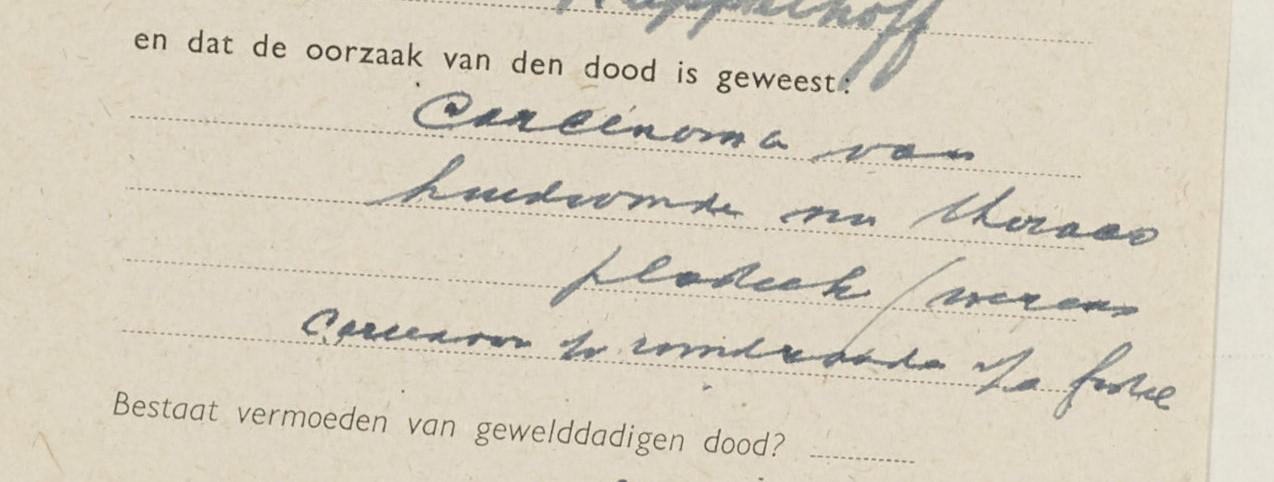 en dat de oorzaak van den dood is geweest:
Carcinoma van
huidwonde na thorax
plastiek / wegens
Carcinoom
Bestaat vermoeden van gewelddadigen dood?